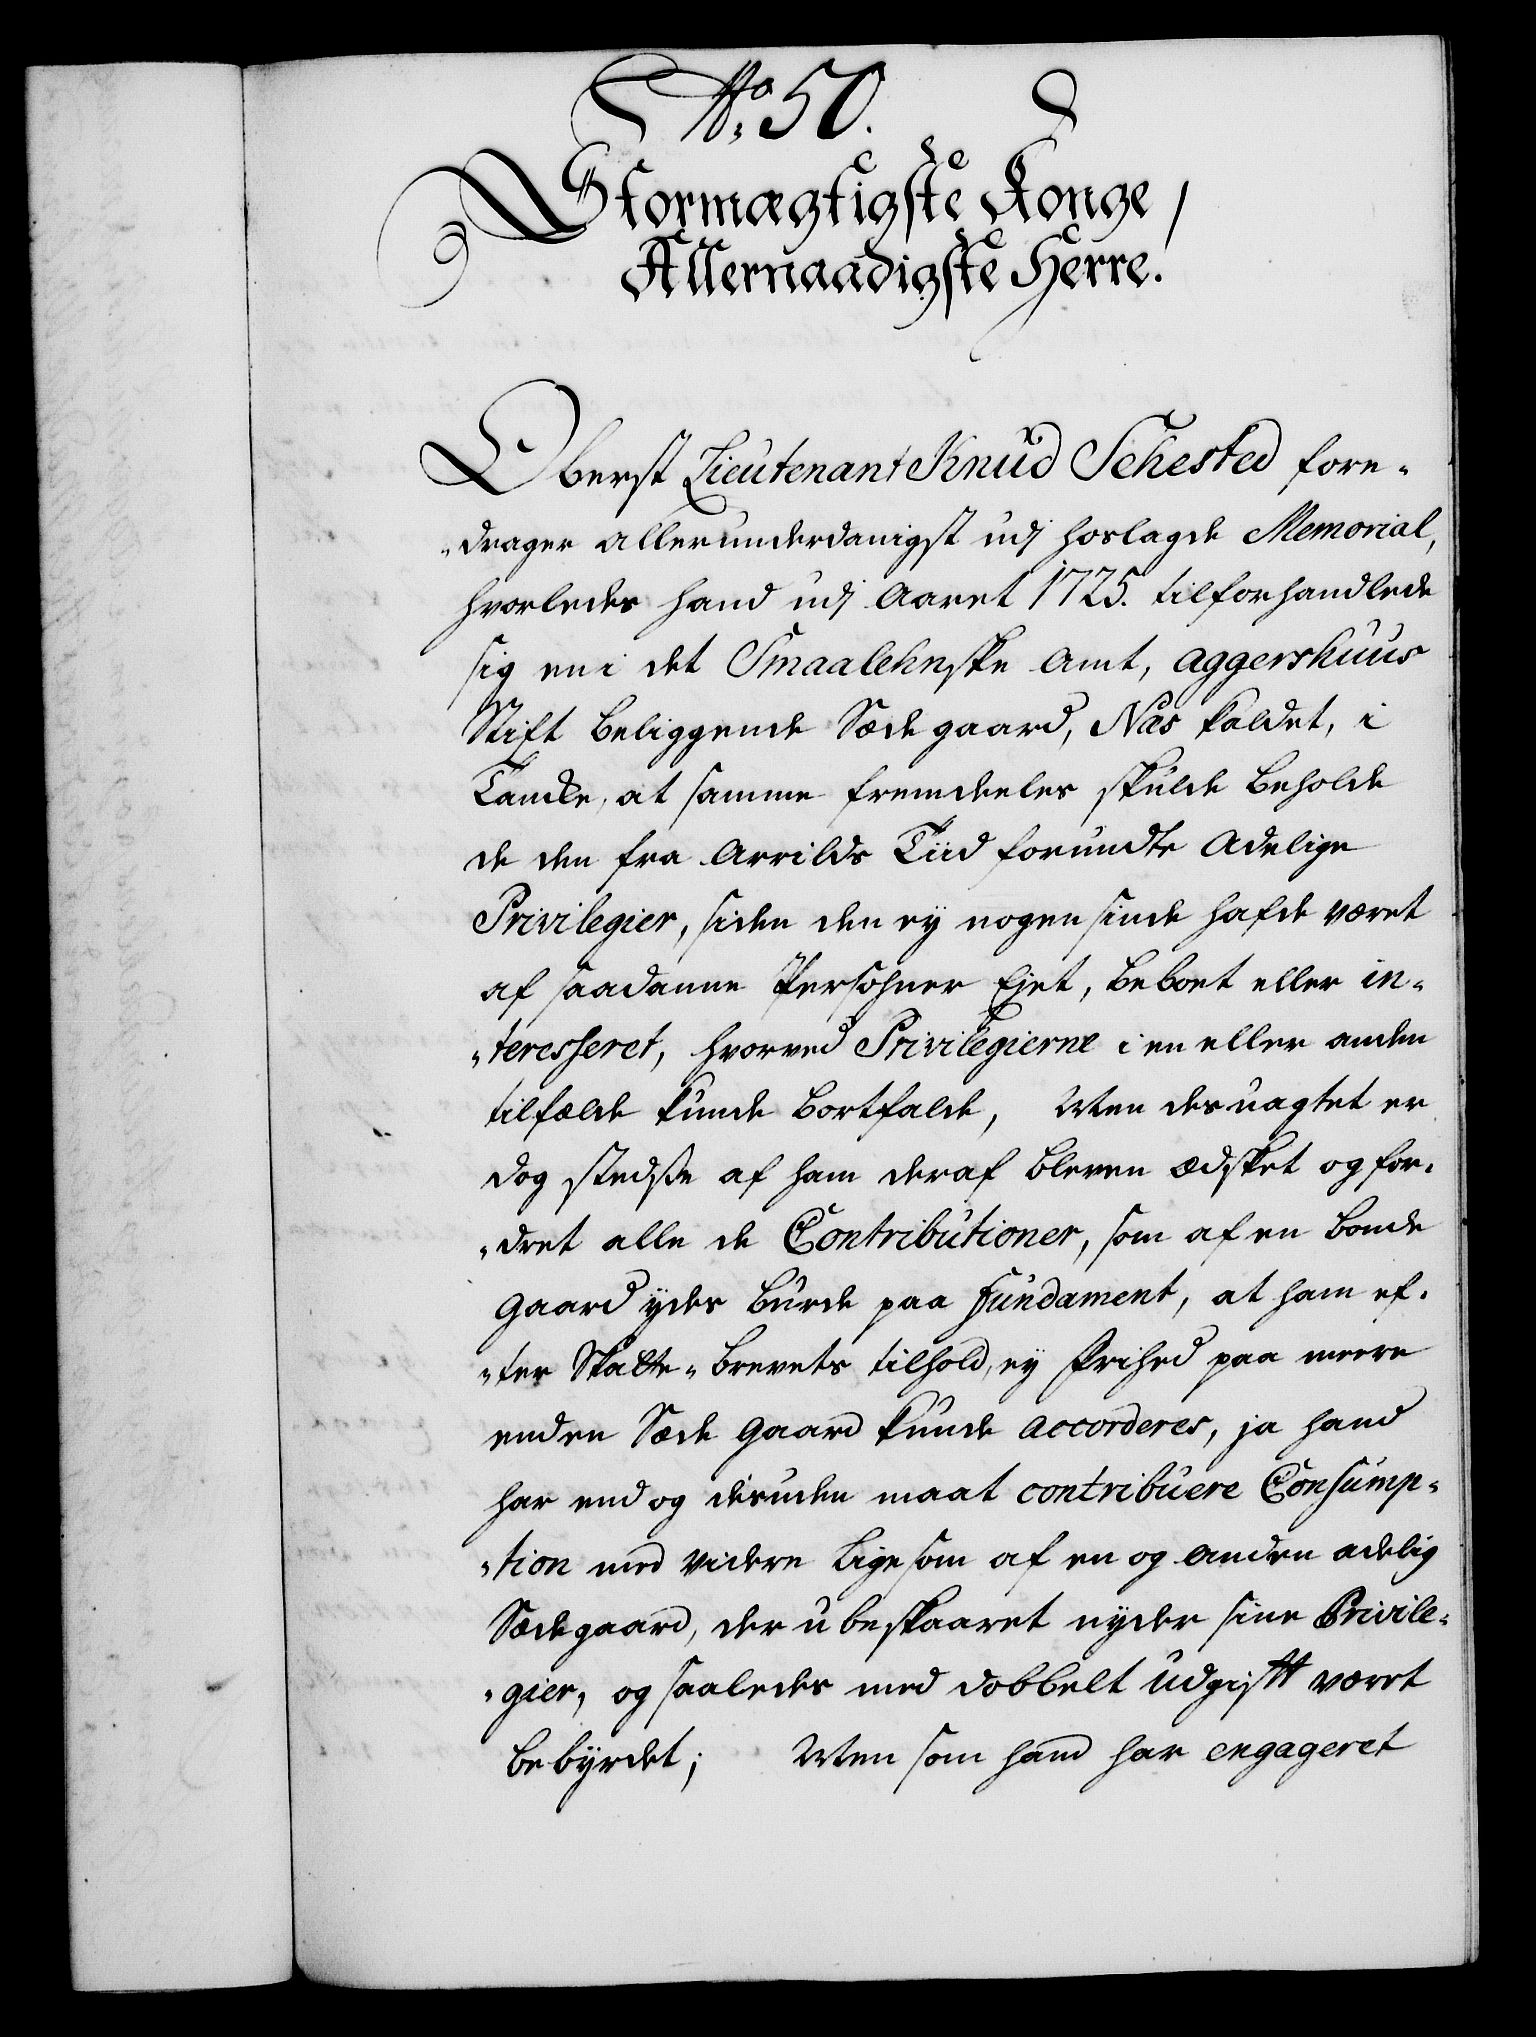 No. 50.
Stormægtigste Konge,
Allernaadigste Herre.
Oberst Lieutenant Knud Sehested fore-
-drager allerunderdanigst udj hoslagde Memorial,
hvorledes hand udj Aaret 1725. tilforhandlede
sig en i det Smaalehnske Amt, Aggershuus
Stift beliggende Sædegaard, Næs kaldet, i
Tancke, at samme fremdeeles skulde beholde
de den fra Arrilds Tiid forundte Adelige
Privilegier, siden den ey nogensinde hafde været
af saadanne Persohner Ejet, beboet eller in-
-teresseret, hvorved Privilegierne i en eller anden
tilfælde kunde bortfalde, Men des uagtet er
dog stedse af ham deraf bleven ædsket og for-
-dret alle de Contributioner, som af en bonde
gaard ydes burde paa Fundament, at ham ef-
-ter Skatte-brevets tilhold, ey frihed paa meere
end en Sæde gaard kunde accorderes, ja hand
har end og desuden maat contribuere Consump-
-tion med videre ligesom af en og anden adelig
Sædegaard, der ubeskaaret nyder sine Privile-
-gier, og saaledes med dobbelt udgifft været
bebyrdet; Men som hand har engageret